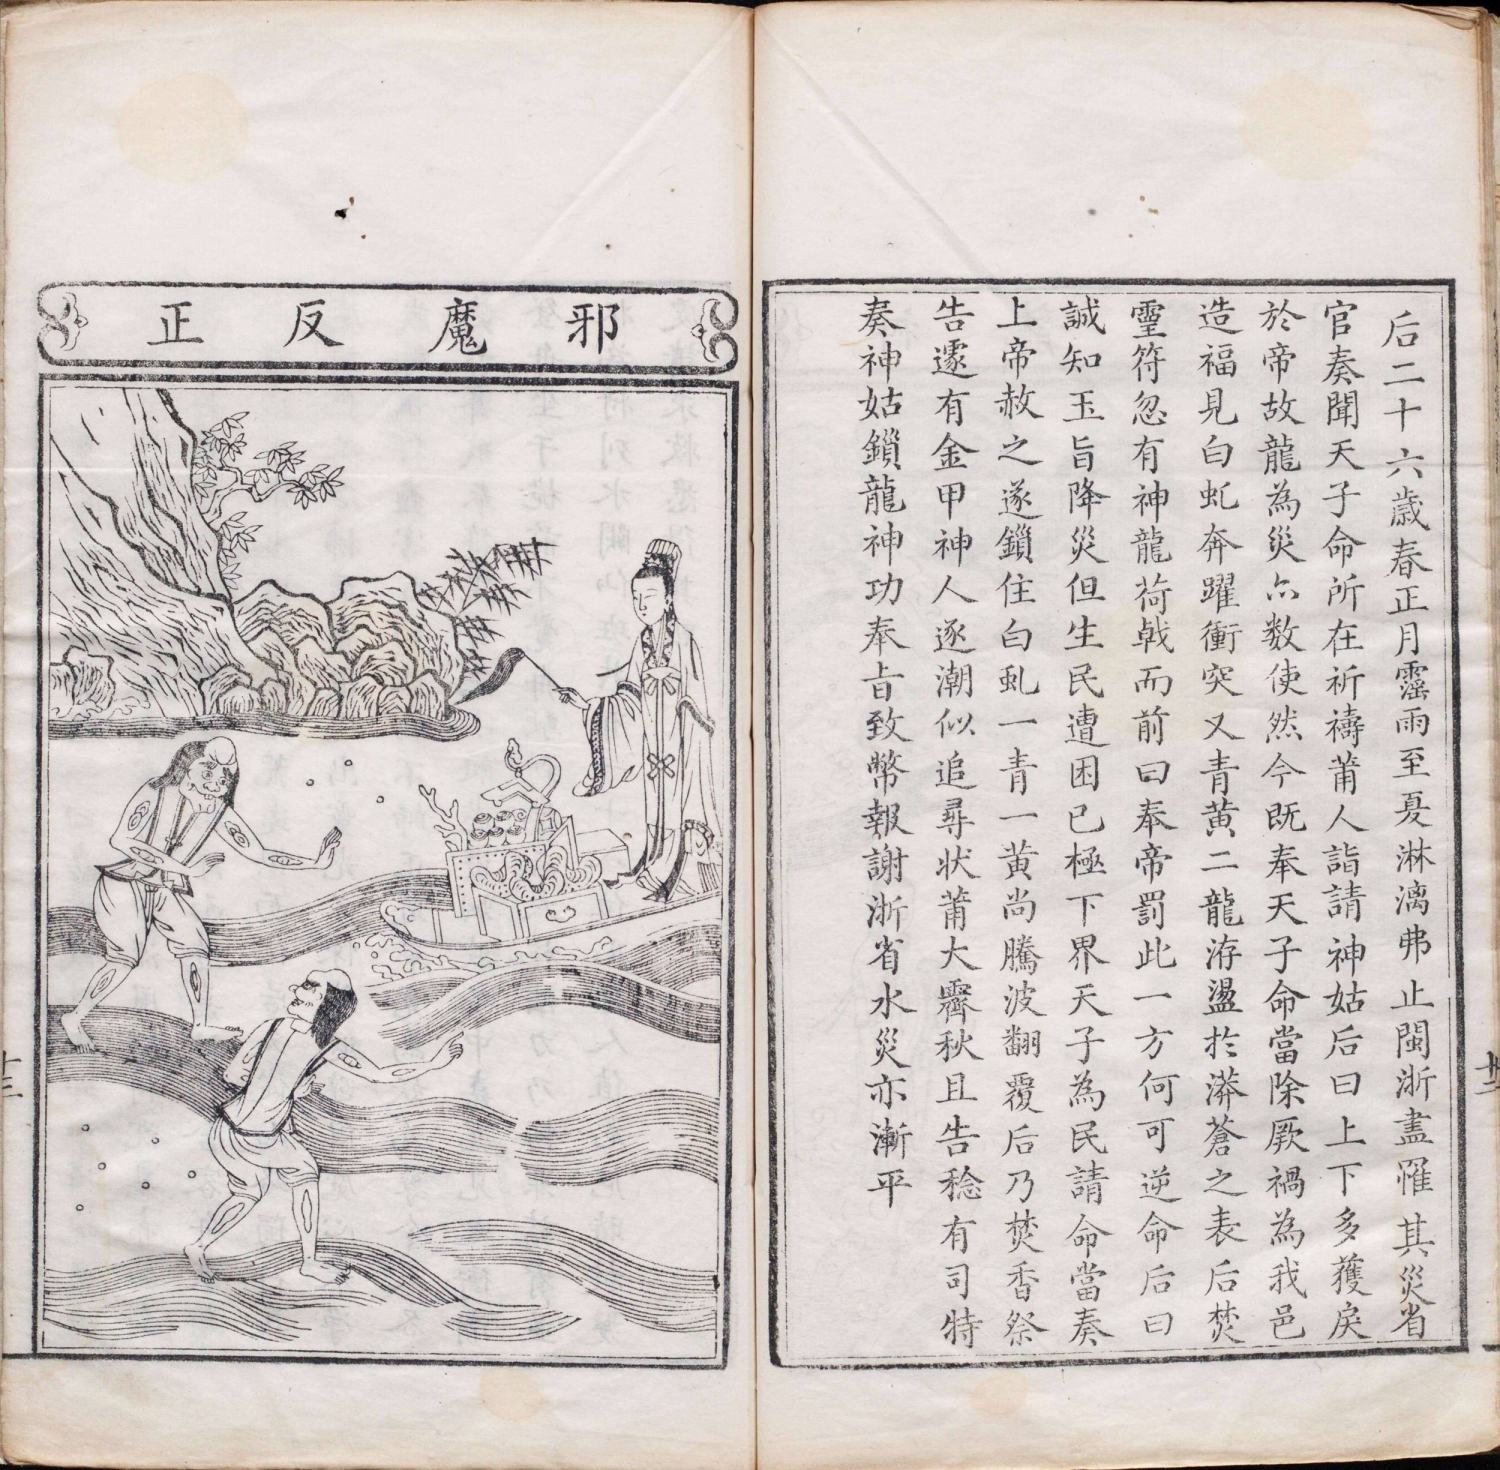 后二十六歲春正月霪雨至夏淋漓弗止閩浙盡罹其災省
官奏聞天子命所在祈禱莆人詣請神姑后曰上下多獲戾
於帝故龍為災亦数使然今既奉天子命當除厥禍為我邑
造福見白虬奔躍衝突又青黄二龍洊盪於漭蒼之表后焚
靈符忽有神龍荷戟而前曰奉帝罰此一方何可逆命后曰
誠知玉旨降災但生民遭困已極下界天子為民請命當奏
上帝赦之遂鎖住白虬一青一黄尚騰波翻覆后乃焚香祭
告遽有金甲神人逐潮似追尋状莆大霽秋且告稔有司特
奏神姑鎖龍神功奉旨致幣報謝浙省水災亦漸平
邪魔反正